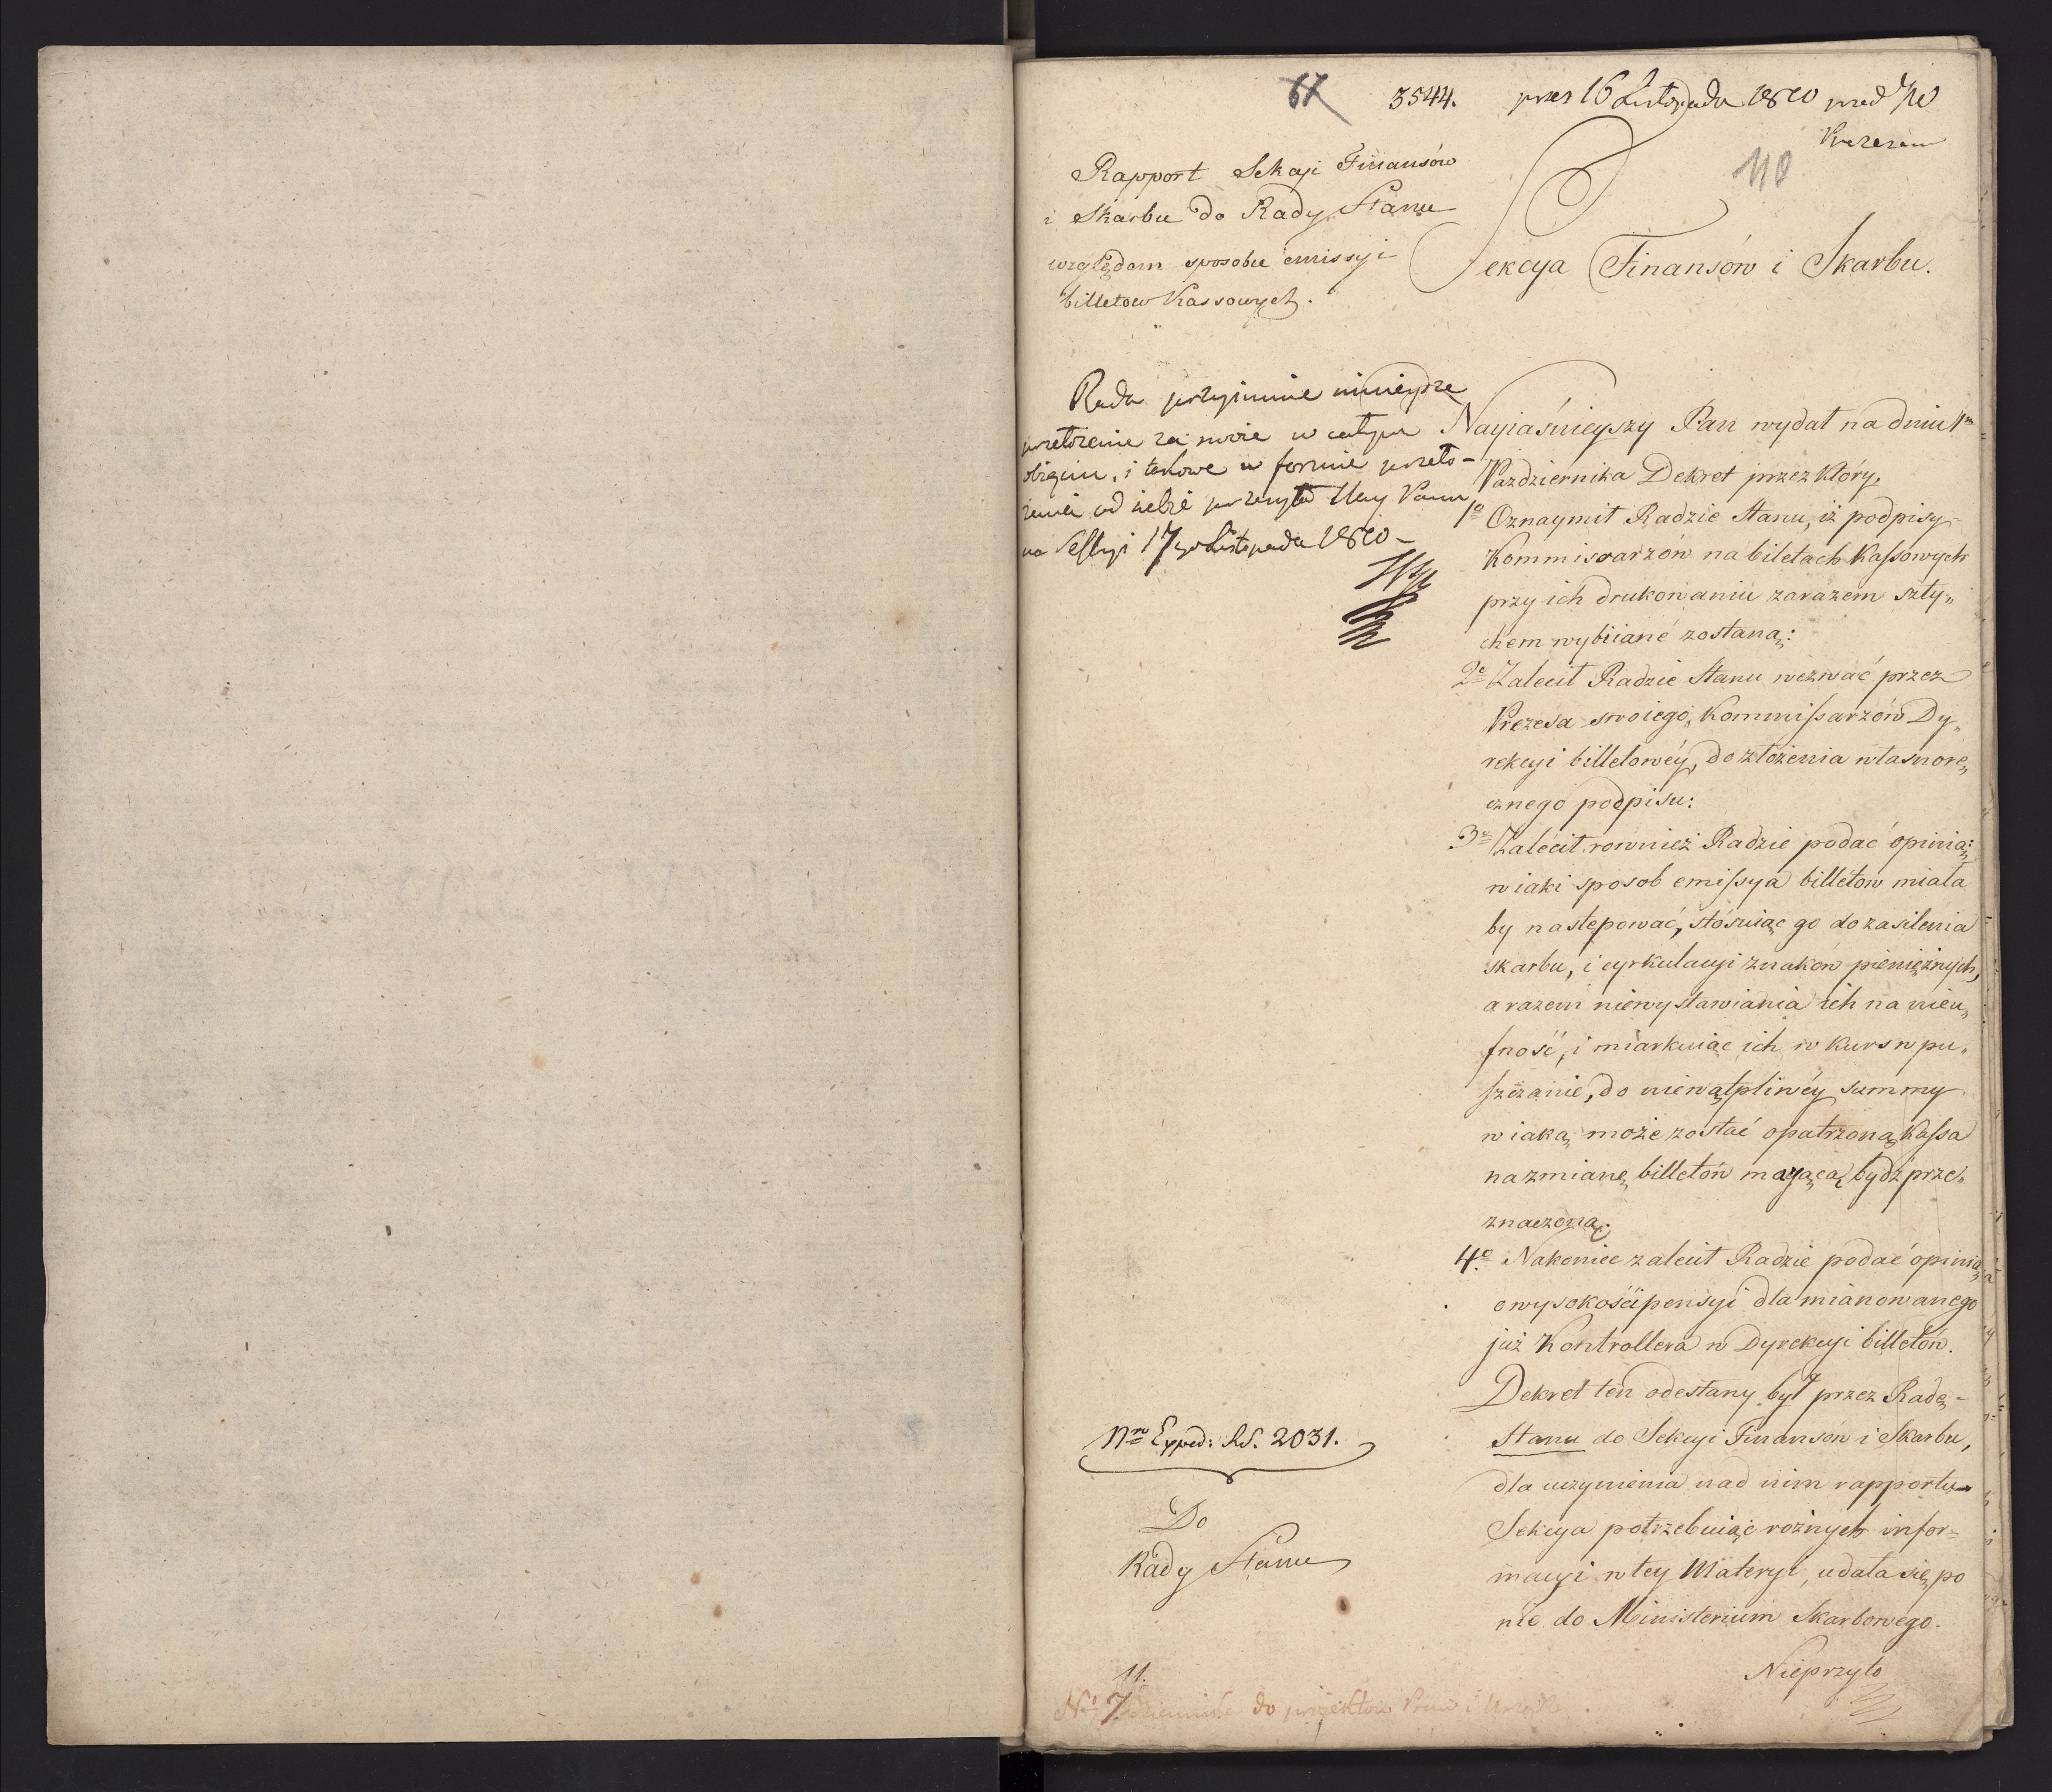 67 3544. pres 16 Listopada 1810 pred
110
Rapport Sekcyi Finansów
i Skarbu do Rady Stanu
względem sposobu emissyi
billetow Kassowych.
Sekcya Finansów i Skarbu.
Rada przyimuie ninieysze
przełożenie za swoie w całym
obięciu, i takowe w formie przeło-
żenia od siebie przesyła Nay Panu
na Sessyi 17go Listopada 1810 -
Nayiaśnieyszy Pan wydał na dniu 1m
Pazdziernika Dekret przez który,
1o Oznaymił Radzie Stanu, iż podpisy
Kommissarzów na biletach Kassowych
przy ich drukowaniu zarazem szty„
chem wybiiane zostaną:
2e Zalecił Radzie Stanu wezwać przez
Prezesa swoiego, Kommissarzów Dy„
rekcyi billetowéy, do złożenia własnorę„
cznego podpisu:
3e Zalécił rownież Radzie podać opinią:
w iaki sposob emissya billetow miała
by nastepować, stósuiąc go do zasilenia
skarbu, i cyrkulacyi znaków pieniężnych,
a razem niewystawiania ich na nieu„
fność, i miarkuiąc ich w kurs wpu„
szczanie, do niewątpliwéy summy
w iaką może zostać opatrzoną Kassa
na zmianę billetów maiącą bydź prze„
znaczoną.
4o Nakoniec zalecił Radzie podać opinią
o wysokości pensyi dla mianowanego
już Kontrollera w Dyrekcyi billetów.
Dekret ten odesłany był przez Radę
Stanu do Sekcyi Finansów i Skarbu,
dla uczynienia nad nim rapportu
Sekcya potrzebuiąc rożnych infor=
macyi w tey Materyi, udała się po
nie do Ministerium Skarbowego.
Nieprzyto
Nro Exped: R.S. 2031.
Do
Rady Stanu
11.
No 7 Dziennika do proiektow Praw i